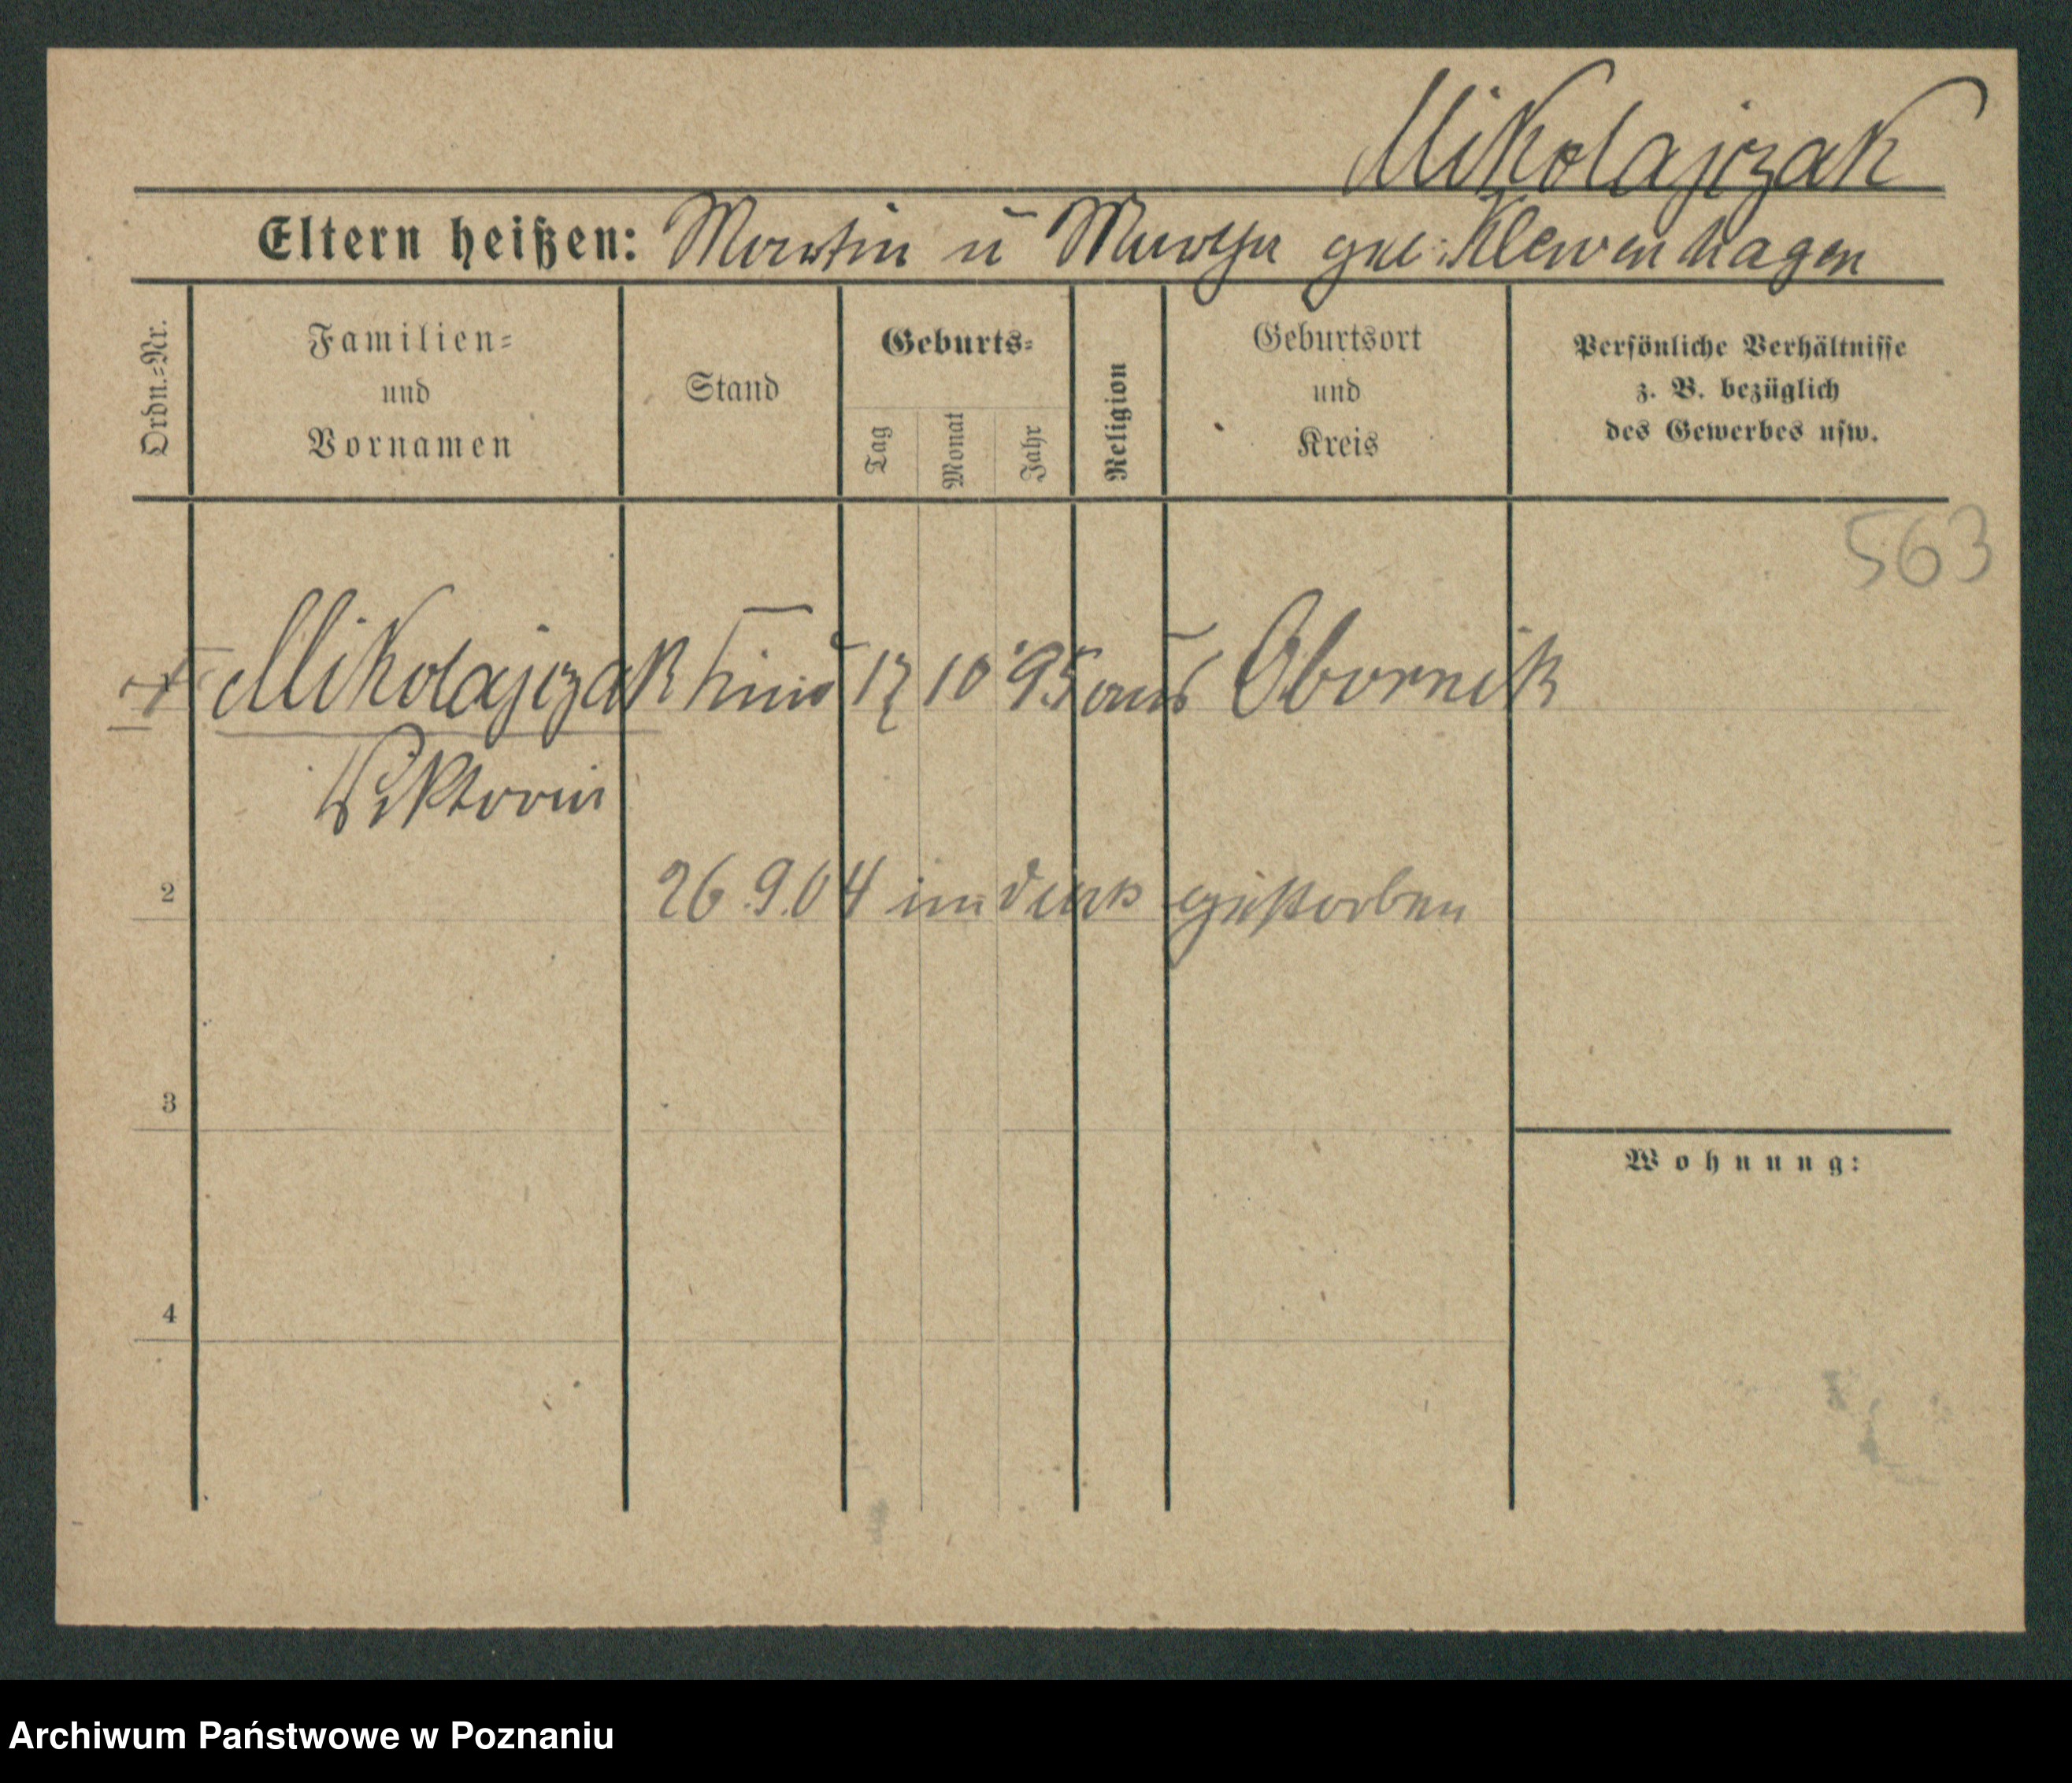 Mikolajczak
Eltern heißen: Martin u Martha geb. Klewenhagen
Ordn.=Nr.
Familien=
und
Vornamen
Stand
Geburts=
Tag
Monat
Jahr
Religion
Geburtsort
und
Kreis
Persönliche Verhältnisse
z. B. bezüglich
des Gewerbes usw.
563
Mikolajczak 17 10 95 aus Obornik
Viktoria
2
26.9.04 gestorben
3
Wohnung:
4
Archiwum Państwowe w Poznaniu